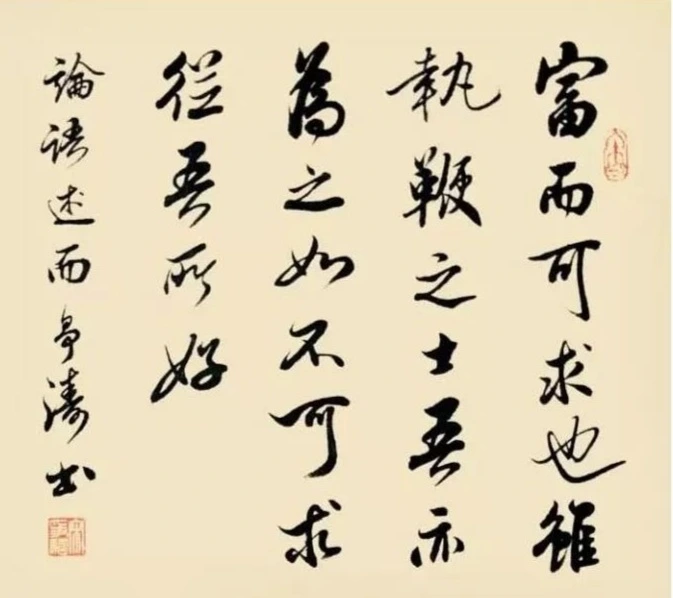 富而可求也雖
執鞭之士吾亦
為之如不可求
從吾所好
論語述而濤書